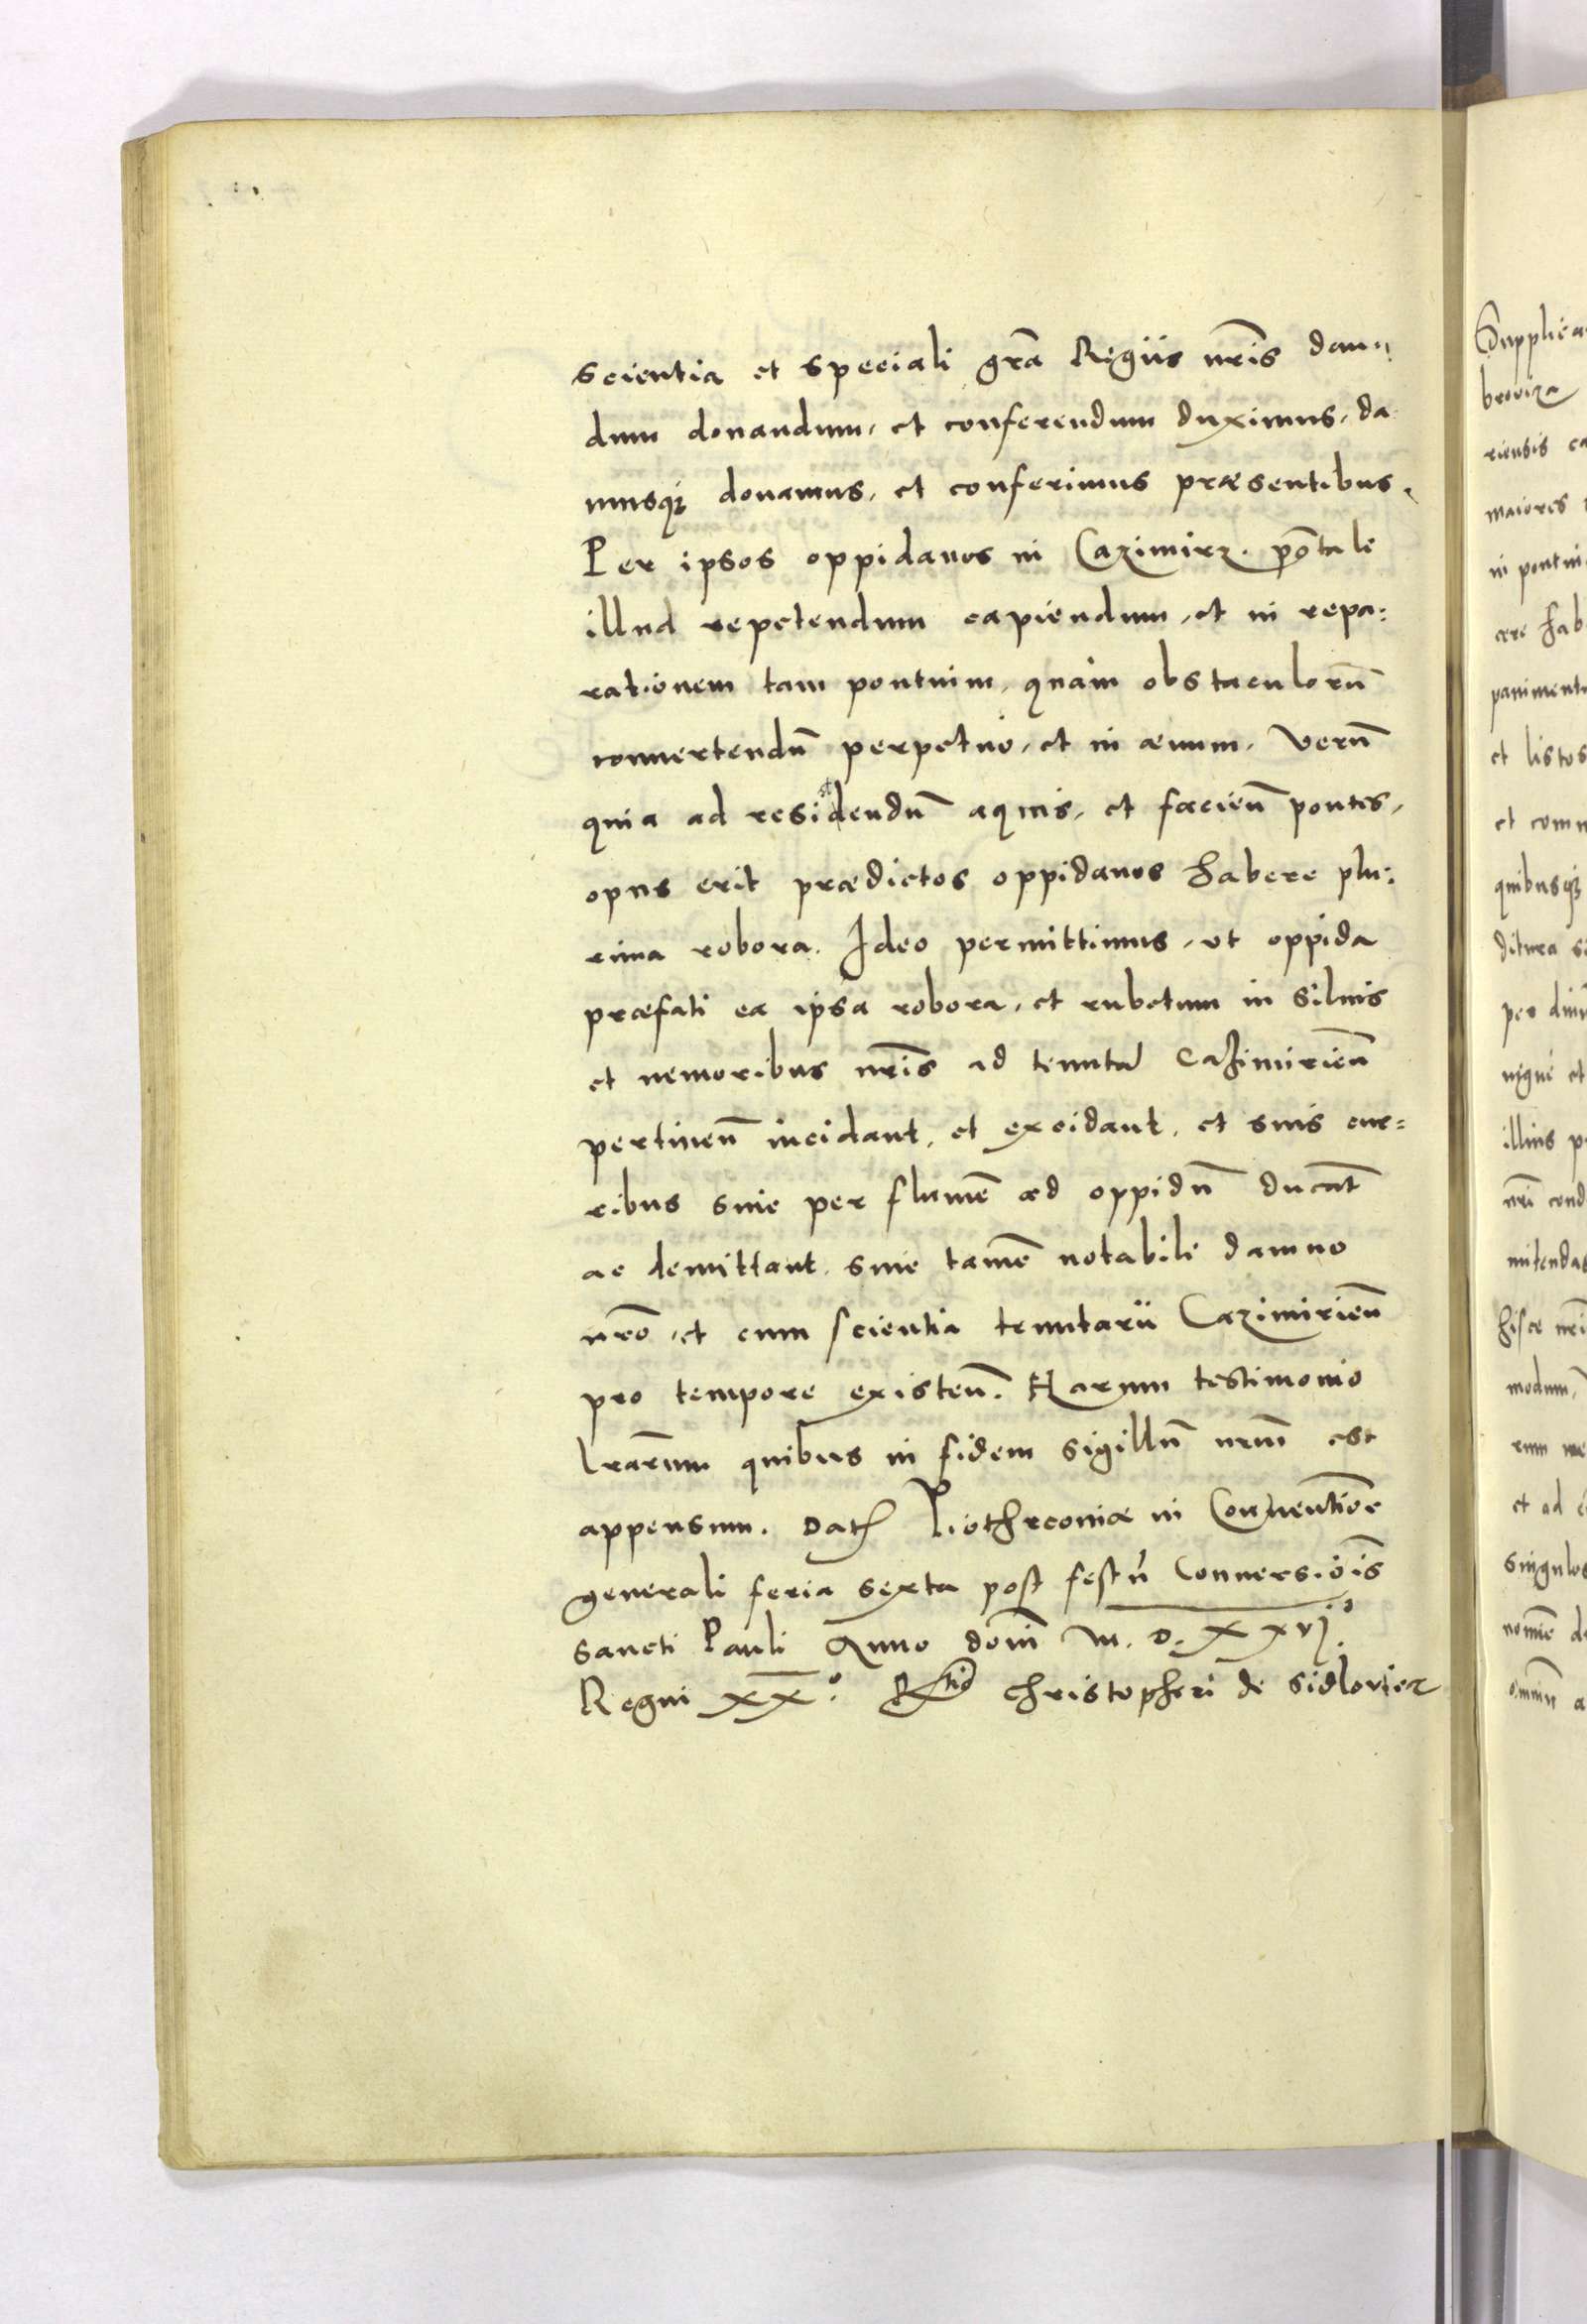 scientia et speciali gr̄a Regiis nr̄is dan„
dum donandum, et conferendum duximus, da
musq̨ donamus, et conferimus præsentibus,
Per ipsos oppidanos in Cazimirz. po̅tale
illud repetendum capiendum, et in repa:
rationem tam pontium, quàm obstaculorū
conuertendū perpetuo, et in æuum. Verū
quia ad residendū aquis, et facieñ pontes,
opus erit prædictos oppidanos habere plu:
rima robora. Ideo permittimus, vt oppida
præfati ea ipsa robora, et rubetum in siluis
et nemoribus nr̄is ad tenutā Cazimirieñ
pertineñ incidant, et excidant, et suis cur=
ribus siue per flumē ad oppidū ducāt
ac demittant, sine tamē notabili damno
nr̄o, et cum scientia tenutarii Cazimirieñ
pro tempore existeñ. Harum testimonio
lr̄arum quibus in fidem sigillū nrūm est
appensum. Dat Piothrconiæ in Conuentiōe
generali feria sexta post festū Conuersiōis
sancti Pauli Anno domī M. D. XXVJ.º
Regni XX.º R̄tio Christopheri de Sidlovier
Supplica
broviza
riensis ca
maiores
in pontiu
cere hab
pauiment
et listos
et comm
quibusq̨
ditura si
per diu
nigue et
illius p
nr̄i cond
mitendas
hisce nr̄i
modum,
rum me
et ad
singulos
nomīe d
omniū a